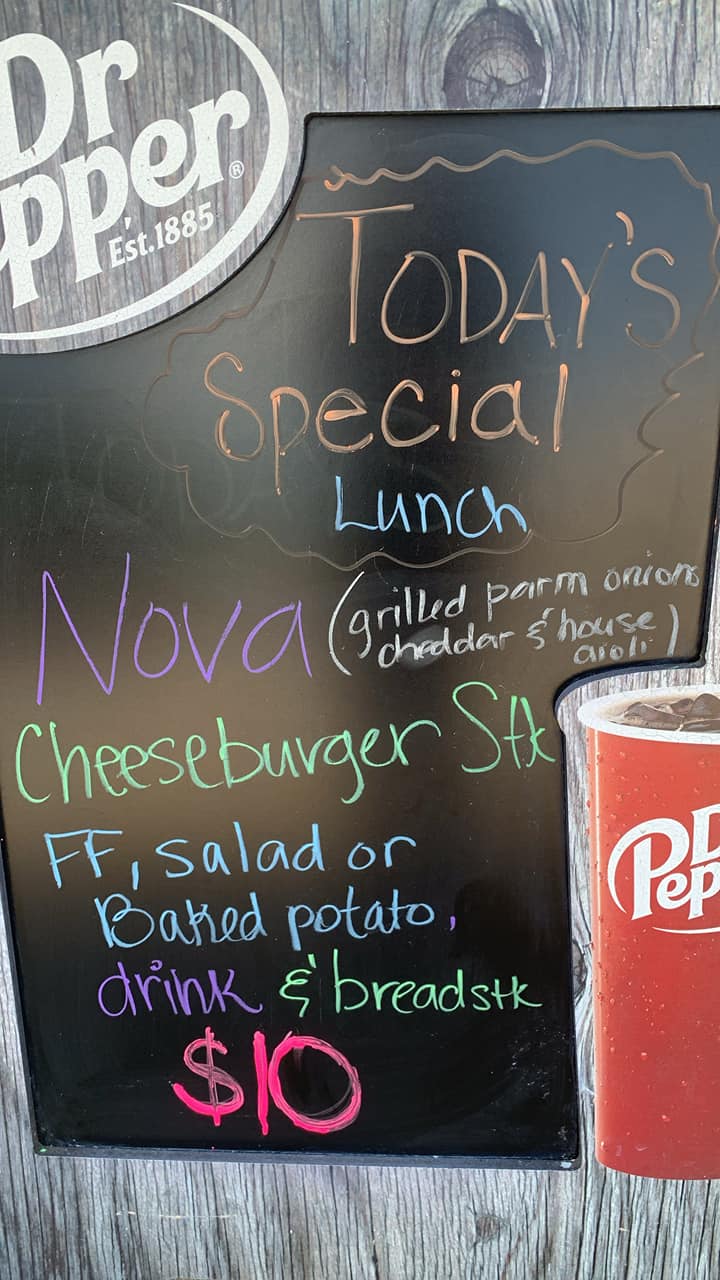 Dr
epper®
Est.1885
TODAY'S
Special
Lunch
Nova (grilled parm onions
cheddar & house
aioli)
Cheeseburger Stk
FF, salad or
Baked potato,
drink & breadstk
$10
D
Pep